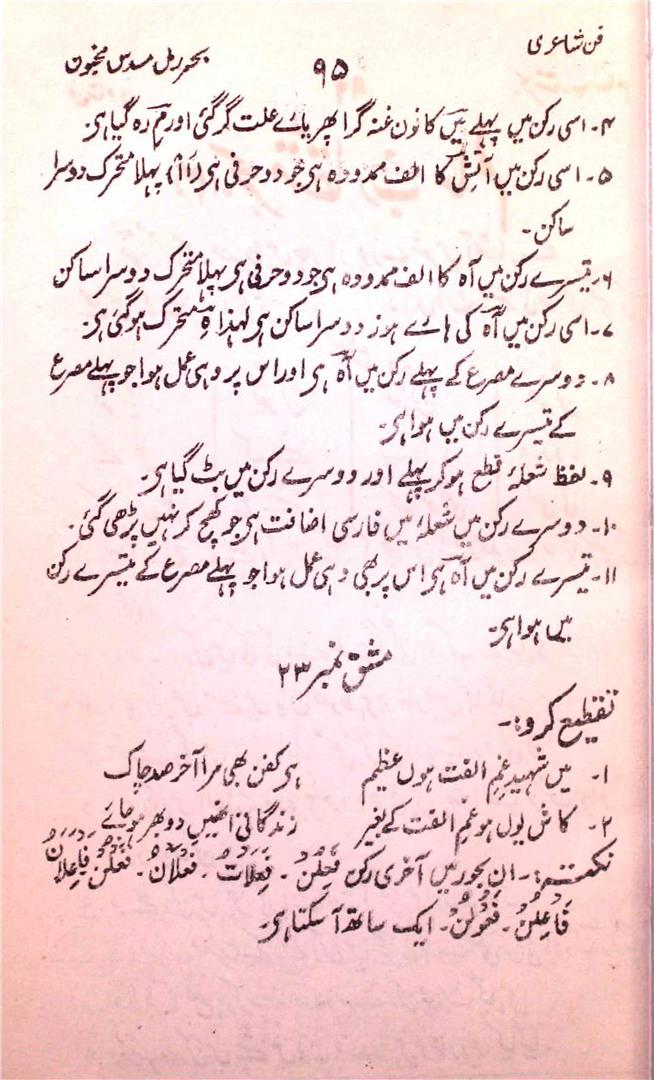 فن شاعری
۹۵
بحر رمل مسدس مخبون
۴۔ اسی رکن میں پہلے میں کا نون غنہ گرا پھر یائے علت گر گئی اور مِ رہ گیا ہی۔
۵۔ اسی رکن میں آتش کا الف ممدودہ ہی جو دو حرفی ہی (اَاْ) پہلا متحرک دوسرا
ساکن۔
۶۔ تیسرے رکن میں آہ کا الف ممدودہ ہی جو دو حرفی ہی پہلا متحرک دوسرا ساکن
۷۔ اسی رکن میں آہ کی ہائے ہوز دوسرا ساکن ہی لہذا ہِ متحرک ہو گئی ہی۔
۸۔ دوسرے مصرع کے پہلے رکن میں آہ ہی اور اس پر وہی عمل ہوا جو پہلے مصرع
کے تیسرے رکن میں ہوا ہی۔
۹۔ لفظ شعلۂ قطع ہو کر پہلے اور دوسرے رکن میں بٹ گیا ہی۔
۱۰۔ دوسرے رکن میں شعلۂ میں فارسی اضافت ہی جو کھچ کر نہیں پڑھی گئی۔
۱۱۔ تیسرے رکن میں آہ ہی اس پر بھی وہی عمل ہوا جو پہلے مصرع کے تیسرے رکن
میں ہوا ہی۔
مشق نمبر ۲۳
تقطیع کرو:۔
۱۔ میں شہیدِ غمِ الفت ہوں عظیم ہی کفن بھی مرا آخر صد چاک
۲۔ کاش یوں ہو غمِ الفت کے بغیر زندگانی انھیں دوبھر ہو جائے
نکتہ:۔ ان بحور میں آخری رکن فَعِلُنْ۔ فَعِلَاتُ۔ فَعْلَانُ۔ فَعْلُنْ فَاعِلَانُ
فَاعِلُنْ۔ فَعُوْلُنْ۔ ایک ساتھ آ سکتا ہی۔